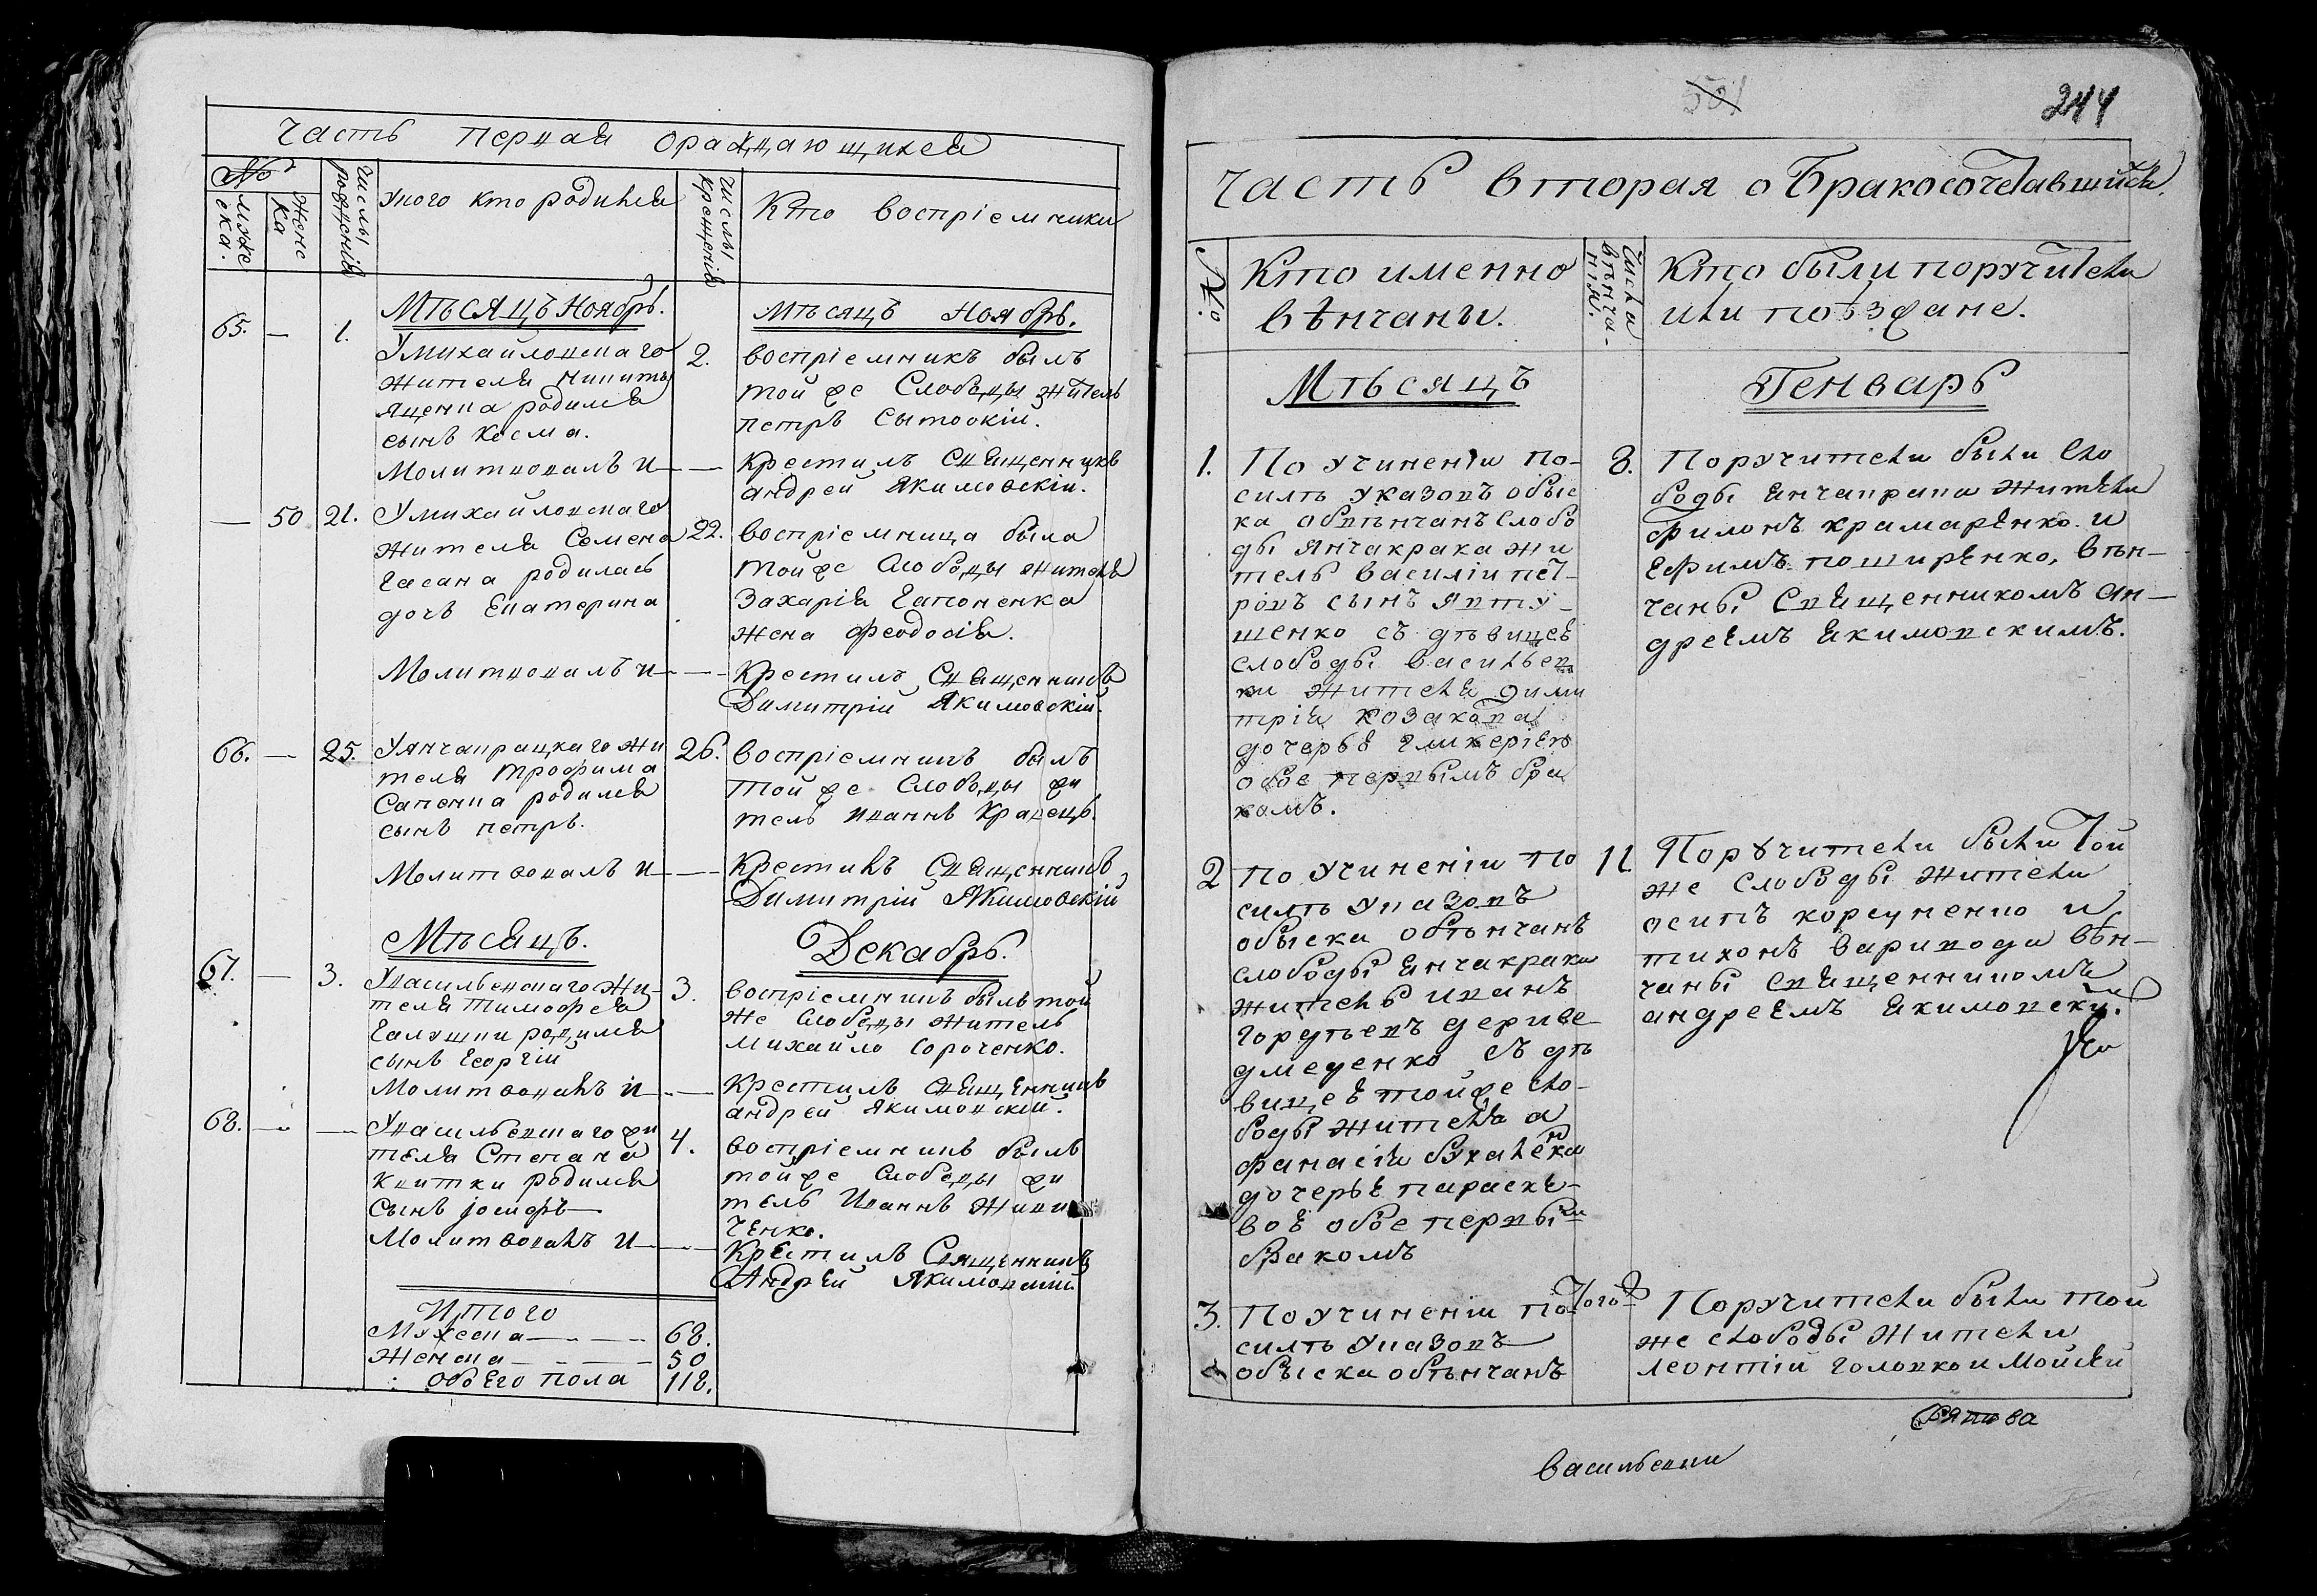 Часть первая ораждающихся
№
мужеска.
женска
Числы рожденія
У кого кто родился
Числы крещенія
Кто воспріемники
Мѣсяцъ Ноябрь.
Мѣсяцъ Ноябрь.
65. — 1.
У михайловскаго
жителя никиты
яценка родился
сынъ Косма.
Молитвовалъ и —
2.
воспріемникъ былъ
той же Слободы житель
петръ Сытоскій.
— Крестилъ Священникъ
андрей Якимовскій.
— 50 21.
У михайловскаго
жителя Семена
гасана родилась
дочь Екатерина
Молитвовалъ и —
22.
воспріемница была
той же Слободы жителя
Захарія Гапоненка
жена Феодосія.
— Крестилъ Священникъ
Димитрій Якимовскій.
66. — 25.
У янчакрацкаго жи
теля трофима
Сапенка родился
сынъ петръ.
Молитвовалъ и —
26.
воспріемникъ былъ
той же Слободы жи
тель иваннъ Кравецъ.
— Крестилъ Священникъ
Димитрій Якимовскій
Мѣсяцъ.
Декабрь.
67. — 3.
У васильевскаго жи-
теля тимофея
Галушки родился
сынъ Георгій
Молитвовалъ и —
3.
воспріемникъ былъ той
же Слободы житель
михайло Сороченко.
— Крестилъ Священникъ
андрей Якимовскій.
68. — —
У васильевскаго жи
теля Степана
Квитки родился
Сынъ Іосифъ
Молитвовалъ и —
4.
воспріемникъ былъ
той же Слободы жи
тель Иваннъ
ченко.
— Крестилъ Священникъ
Андрей Якимовскій
Итого
Мужеска — 68.
Женска — 50
обоего пола 118.
501
244
Часть вторая о Бракосочетавшихся.
№.
Кто именно
вѣнчаны.
Числа
вѣнча-
нія.
Кто были поручители
или поѣзжане.
Мѣсяцъ
Генварь
1.
По учиненіи по-
силѣ указовъ обыс
ка обвѣнчанъ слобо
ды янчакрака жи
тель василіи пет-
ровъ сынъ япту-
шенко съ дѣвицеѣ
слободы васильев
ки жителя дими
трія козакова
дочерьѣ гликеріею
обое первымъ бра
комъ.
8.
Поручители были сло
боды янчакрака жители
филонъ крамарѣнко и
ефимъ поширѣнко, вѣн-
чаны священникомъ ан-
дреѣмъ якимовскимъ.
2
по учиненіи по
силѣ указовъ
обыска обвѣнчанъ
слободы янчакрака
житель иванъ
гордѣевъ дериве
дмеденко съ дѣ
вицеѣ той же сло-
боды жителя а
фанасія бухалека
дочерьѣ параске-
воѣ обое первымъ
бракомъ
11.
Поручители были той
же слободы жители
осипъ корсуненко и
тихонъ варивода вѣн-
чаны священникомъ
андреемъ якимовским.
3.
По учиненіи по
силѣ указовъ
обыска обвѣнчанъ
того ж
Поручители были той
же слободы жители
леонтій головко и Мойсѣй
васильевки